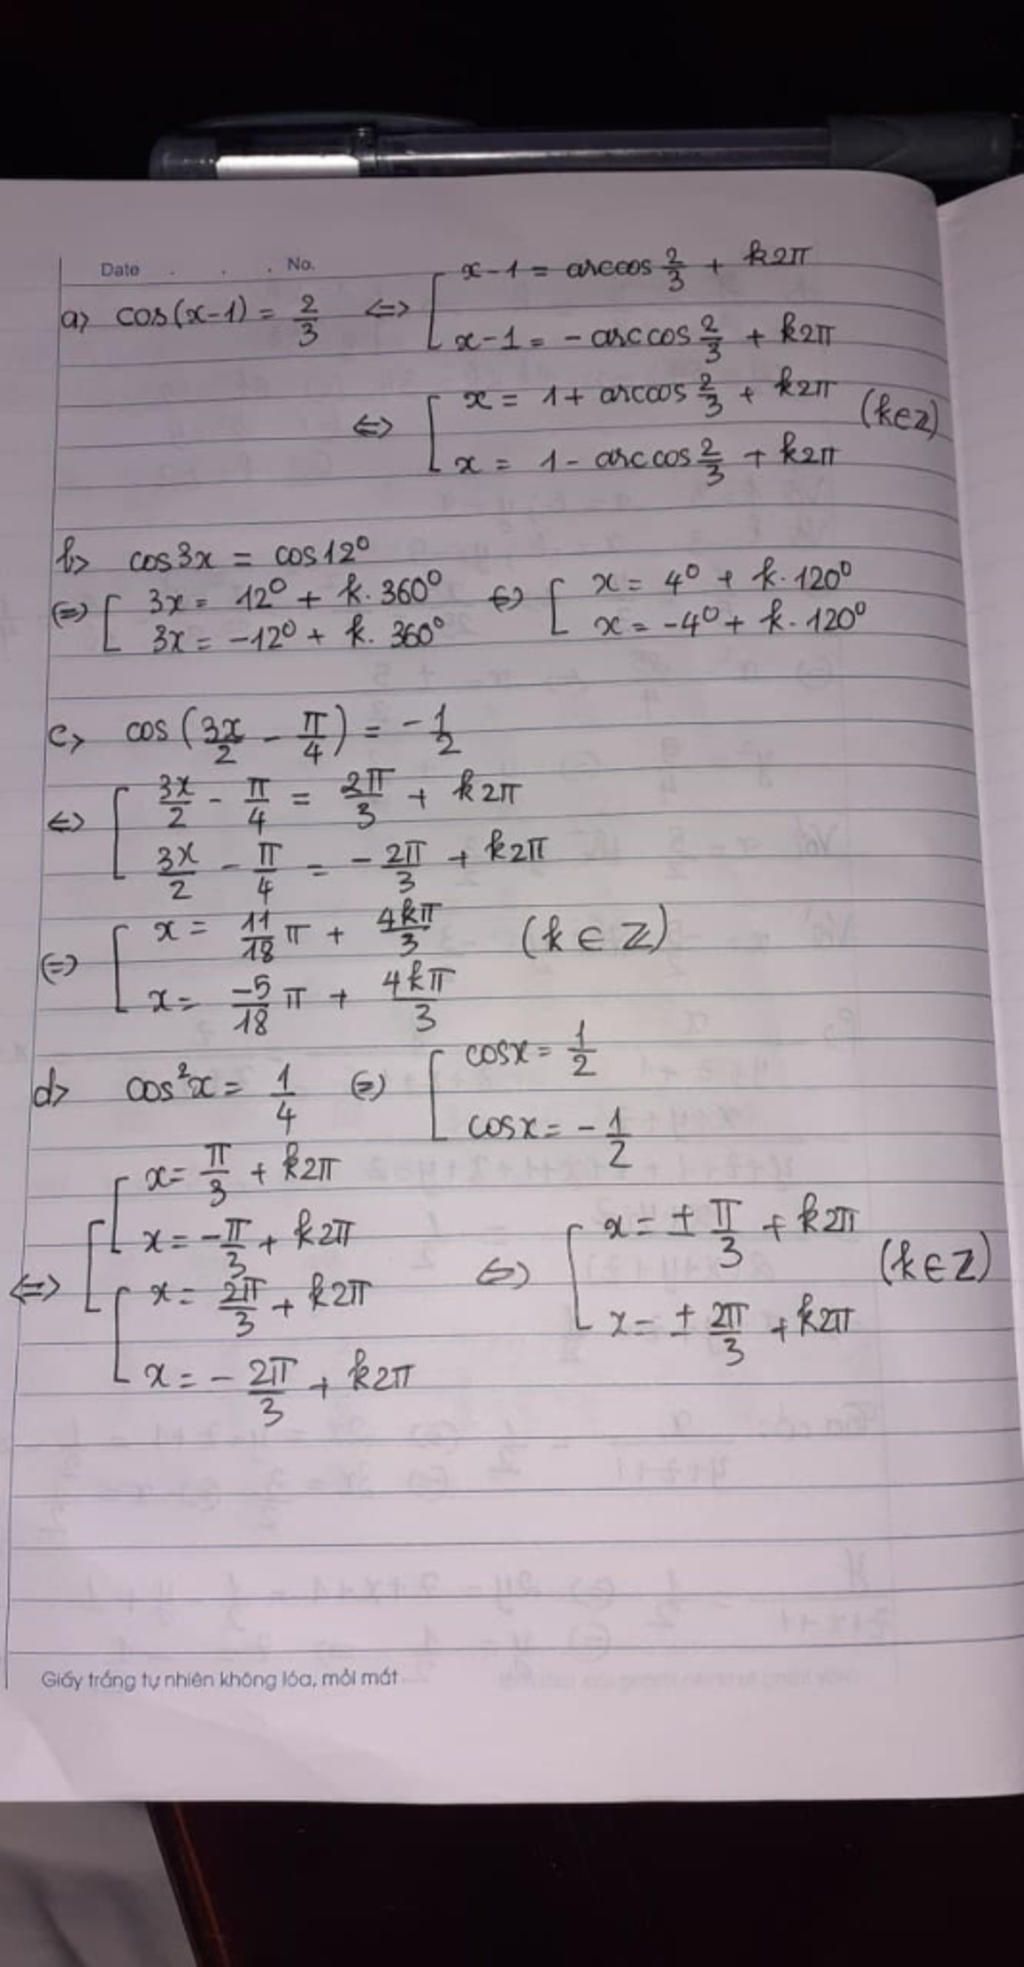 Date . . . No.
a> cos(x-1) = 2/3 <=> [ x-1 = arccos 2/3 + k2π
x-1 = - arccos 2/3 + k2π
<=> [ x = 1 + arccos 2/3 + k2π (k∈Z)
x = 1 - arccos 2/3 + k2π
b> cos3x = cos12°
<=> [ 3x = 12° + k.360° <=> [ x = 4° + k.120°
3x = -12° + k.360° x = -4° + k.120°
c> cos(3x/2 - π/4) = -1/2
<=> [ 3x/2 - π/4 = 2π/3 + k2π
3x/2 - π/4 = - 2π/3 + k2π
<=> [ x = 11/18 π + 4kπ/3 (k ∈ Z)
x = -5/18 π + 4kπ/3
d> cos²x = 1/4 <=> [ cosx = 1/2
cosx = - 1/2
<=> [ [ x = π/3 + k2π
x = -π/3 + k2π <=> [ x = ± π/3 + k2π (k∈Z)
[ x = 2π/3 + k2π x = ± 2π/3 + k2π
x = - 2π/3 + k2π
Giấy trắng tự nhiên không lóa, mỏi mắt